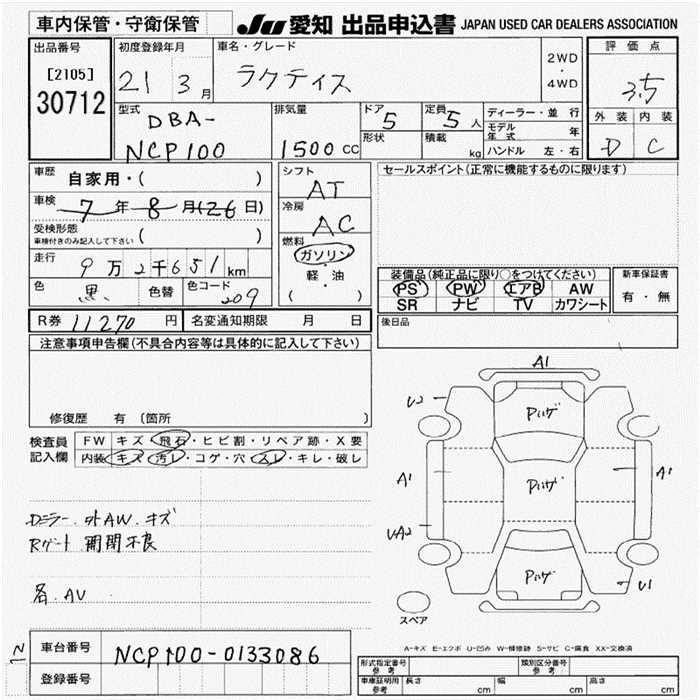 車内保管・守衛保管
JU 愛知 出品申込書 JAPAN USED CAR DEALERS ASSOCIATION
出品番号
[2105]
30712
初度登録年月
21 3月
車名・グレード
ラクティス
2WD
・
4WD
評価点
3.5
外装 内装
D C
型式
DBA-
NCP100
排気量
1500 CC
ドア 5
形状
定員 5人
積載 kg
ディーラー・並行
モデル年式 年
ハンドル 左・右
車歴 自家用・( )
車検 7年8月(26日)
受検形態
車検付きのみ記入して下さい ( )
走行 9万2千651km
色 黒 色替 色コード 209
シフト
AT
冷房
AC
燃料
ガソリン
・
軽・油
( )
セールスポイント(正常に機能するものに限ります)
装備品(純正品に限り○をつけてください)
PS PW エアB AW
SR ナビ TV カワシート
新車保証書
有・無
R券 11270 円 名変通知期限 月 日
後日品
注意事項申告欄(不具合内容等は具体的に記入して下さい)
修復歴 有 (箇所 )
検査員
記入欄
FW キズ・飛石・ヒビ割・リペア跡・X要
内装 キズ・汚レ・コゲ・穴・スレ・キレ・破レ
Dミラー.外AW.キズ
Rゲート 開閉不良
各.AV
A1
U2
Pハゲ
A1
A1
Pハゲ
UA2
Pハゲ
U1
スペア
A-キズ E-エクボ U-凹み W-補修跡 S-サビ C-腐食 XX-交換済
12
車台番号 NCP100-0133086
登録番号
形式指定番号
参考
類別区分番号
参考
車庫証明用
参考
長さ cm 幅 cm 高さ cm